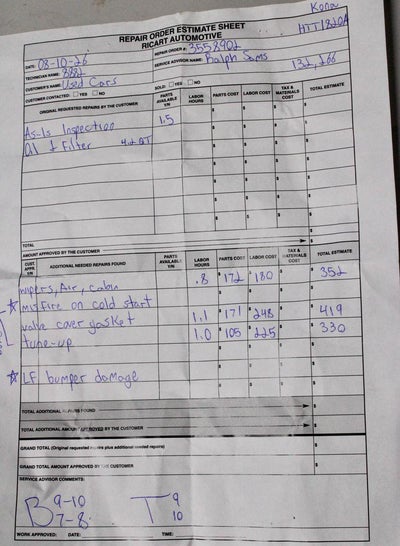 Kona
REPAIR ORDER ESTIMATE SHEET
RICART AUTOMOTIVE
HTT1820A
DATE: 08-10-26
REPAIR ORDER #: 3558902
TECHNICIAN NAME: 8882
SERVICE ADVISOR NAME: Ralph Sams
CUSTOMER'S NAME: Used Cars
132,266
CUSTOMER CONTACTED: YES NO
SOLD: YES NO
ORIGINAL REQUESTED REPAIRS BY THE CUSTOMER PARTS AVAILABLE Y/N LABOR HOURS PARTS COST LABOR COST TAX & MATERIALS COST TOTAL ESTIMATE
As-Is Inspection 1.5
Oil & Filter 4.2 QT
TOTAL
AMOUNT APPROVED BY THE CUSTOMER
CUST. APPR. Y/N ADDITIONAL NEEDED REPAIRS FOUND PARTS AVAILABLE Y/N LABOR HOURS PARTS COST LABOR COST TAX & MATERIALS COST TOTAL ESTIMATE
wipers, Air, Cabin .8 $172 $180 $352
misfire on cold start
valve cover gasket 1.1 $171 $248 $419
tune-up 1.0 $105 $225 $330
LF bumper damage
TOTAL ADDITIONAL REPAIRS FOUND
TOTAL ADDITIONAL AMOUNT APPROVED BY THE CUSTOMER
GRAND TOTAL (Original requested repairs plus additional needed repairs)
GRAND TOTAL AMOUNT APPROVED BY THE CUSTOMER
SERVICE ADVISOR COMMENTS:
B 9-10 T 9
7-8 10
WORK APPROVED: DATE: TIME: